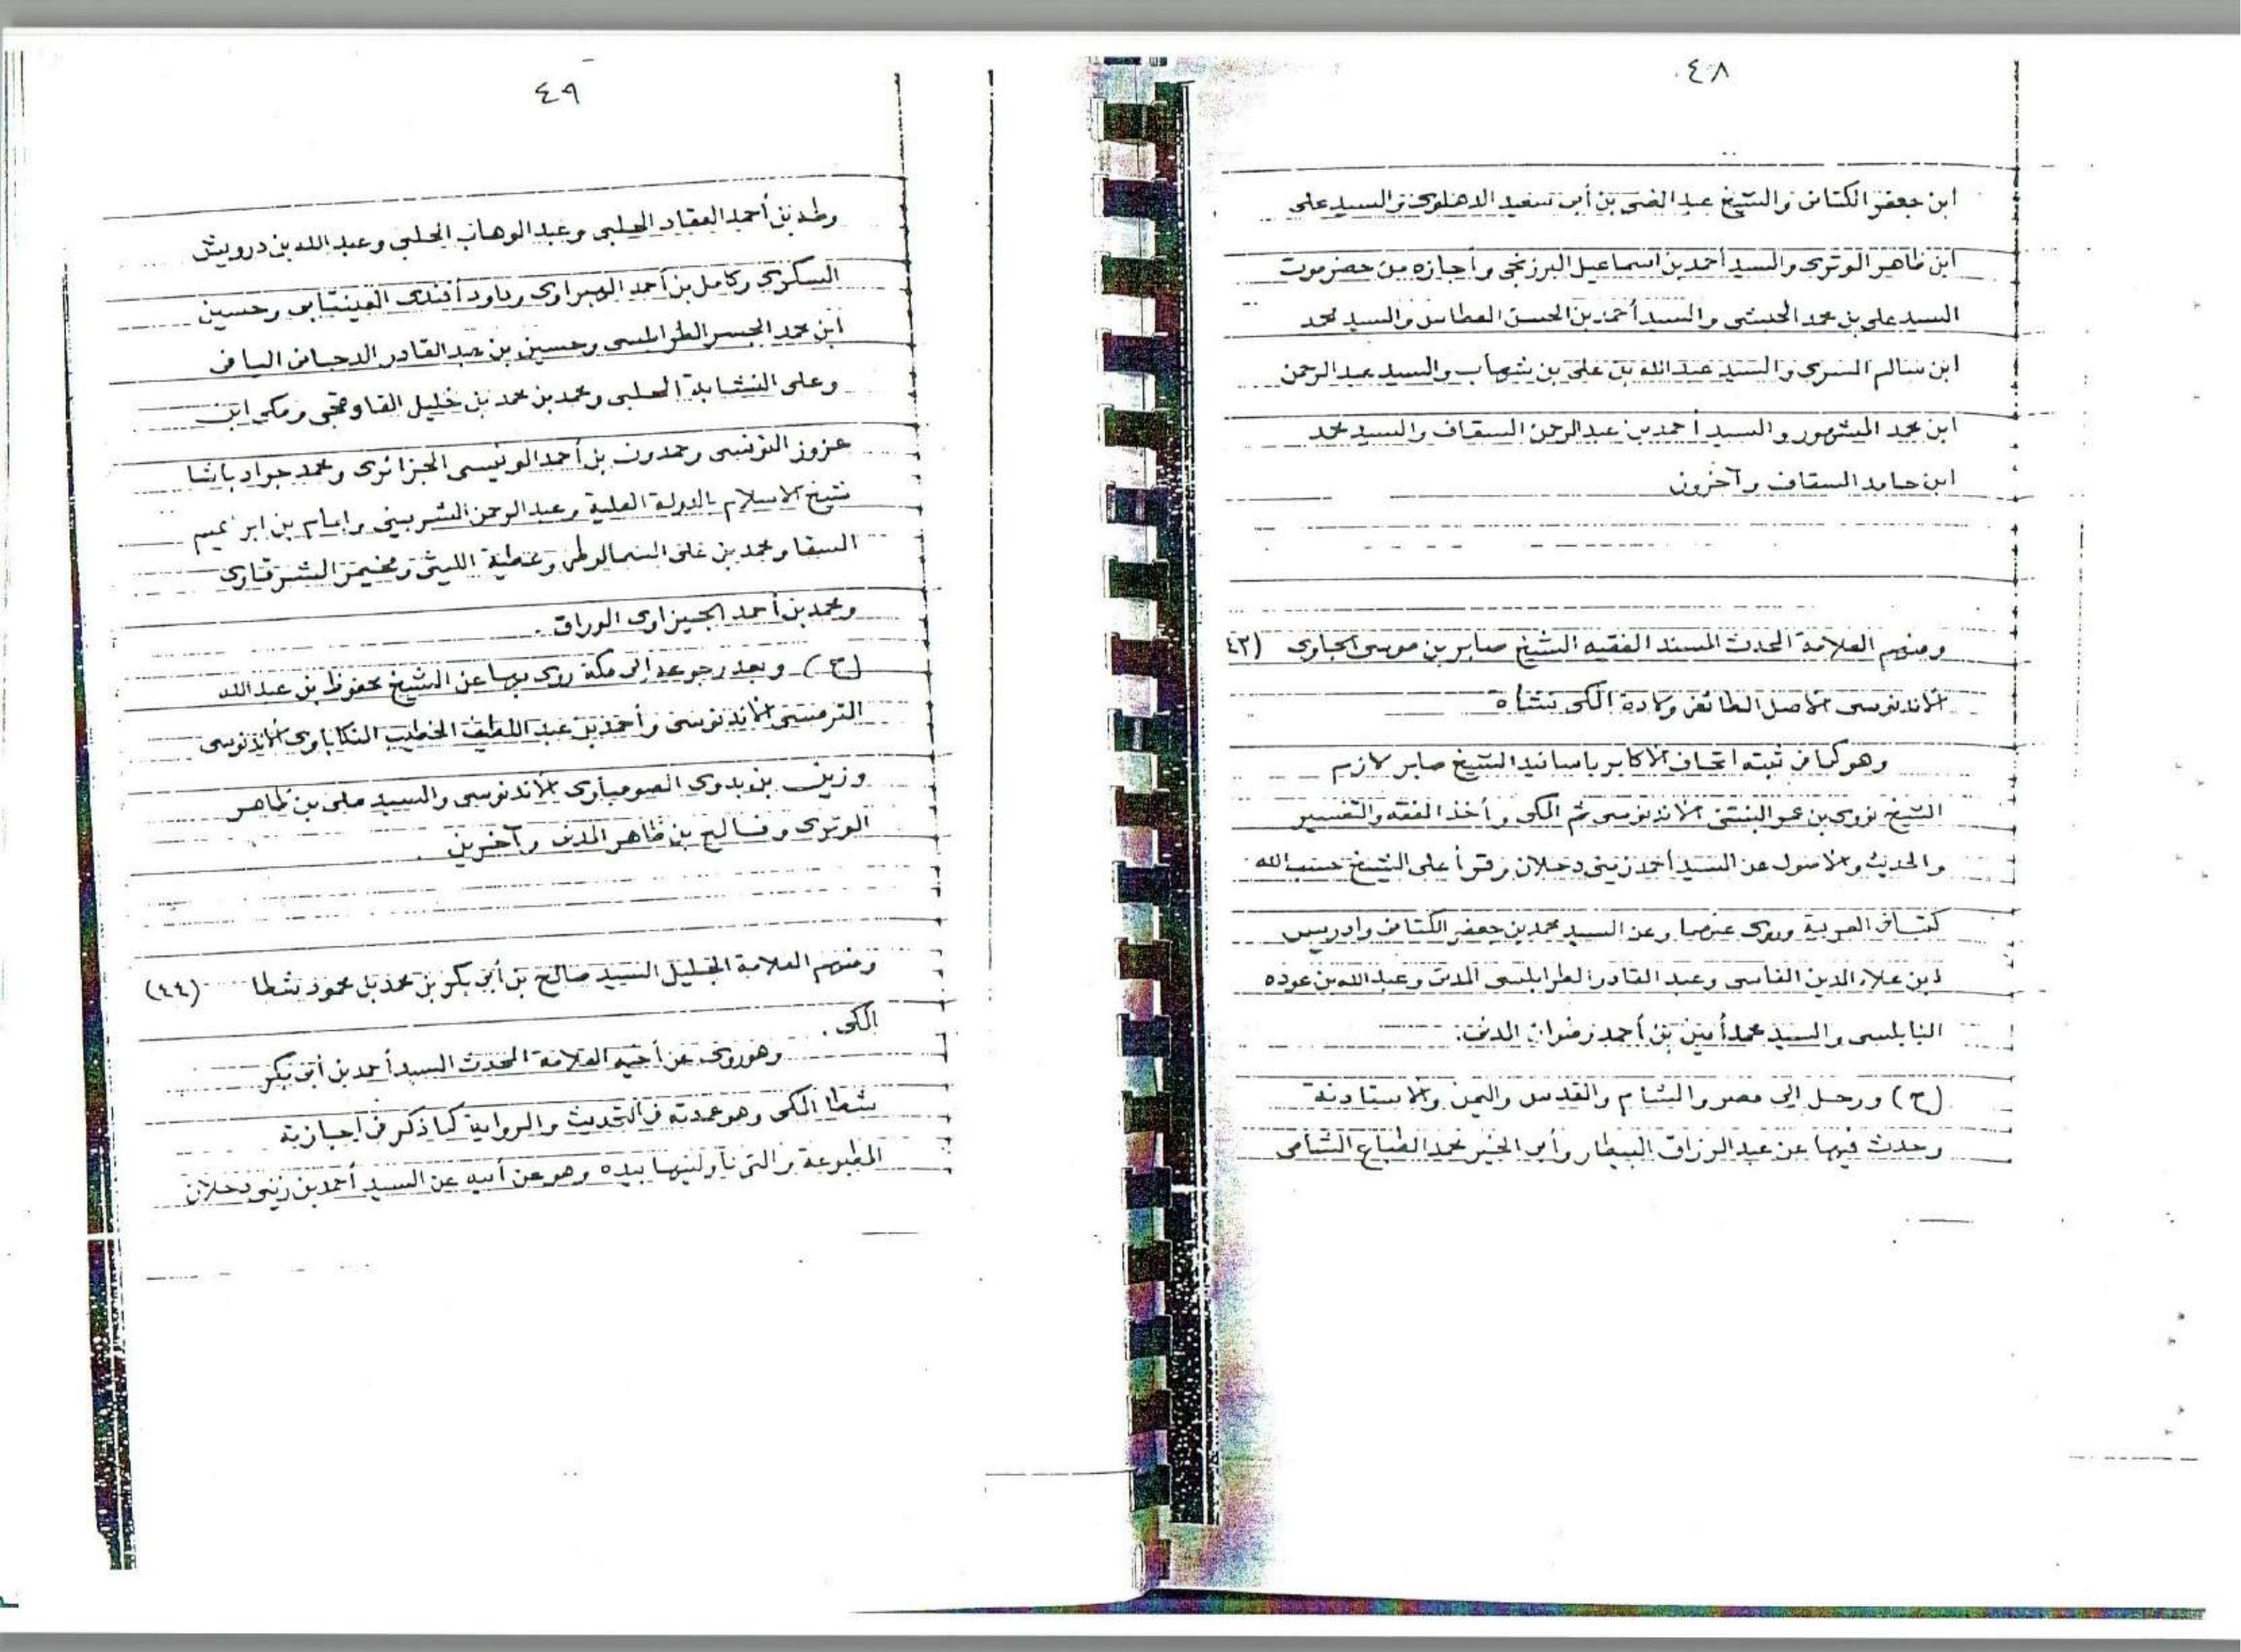 ٤٨
ابن جعفر الكتاني والشيخ عبد الغني بن أبي سعيد الدهلوي والسيد علي
ابن ظاهر الوتري والسيد أحمد بن اسماعيل البرزنجي وأجازه من حضرموت
السيد علي بن محمد الحبشي والسيد أحمد بن الحسن العطاس والسيد محمد
ابن سالم السري والسيد عبد الله بن علي بن شهاب والسيد عبد الرحمن
ابن محمد المشهور والسيد أحمد بن عبد الرحمن السقاف والسيد محمد
ابن حامد السقاف وآخرون
ومنهم العلامة المحدث المسند الفقيه الشيخ صابر بن موسى الجاوي (٤٣)
الأندنوسي الأصل الطائفي ولادة المكي نشأة
وهو كما في ثبته اتحاف الأكابر باسانيد الشيخ صابر لازم
الشيخ نووي بن عمر البنتني الأندنوسي ثم المكي وأخذ الفقه والتفسير
والحديث والأصول عن السيد أحمد زيني دحلان وقرأ على الشيخ حسب الله
كتبا في العربية وروى عنهما وعن السيد محمد بن جعفر الكتاني وادريس
ابن علاء الدين الفاسي وعبد القادر الطرابلسي المدني وعبد الله بن عوده
النابلسي والسيد محمد أمين بن أحمد رضوان المدني.
(ح) ورحل إلى مصر والشام والقدس واليمن والاستانة
وحدث فيها عن عبد الرزاق البيطار وأبي الخير محمد الطباع الشامي
٤٩
وطه بن أحمد العقاد الحلبي وعبد الوهاب الحلبي وعبد الله بن درويش
السكري وكامل بن أحمد الهبراوي وداود أفندي العينتابي وحسين
ابن محمد الجسر الطرابلسي وحسين بن عبد القادر الدجاني اليافي
وعلي النشابة الحلبي ومحمد بن محمد بن خليل القاوقجي ومكي ابن
عزوز التونسي وحمدون بن أحمد الونيسي الجزائري ومحمد جواد باشا
شيخ الاسلام بالدولة العلية وعبد الرحمن الشربيني وامام بن ابراهيم
السقا ومحمد بن علي السمالوطي وعطية الليثي ومخيمر الشرقاوي
ومحمد بن أحمد الجيزاوي الوراق.
(ح) وبعد رجوعه إلى مكة روى بها عن الشيخ محفوظ بن عبد الله
الترمسي الأندنوسي وأحمد بن عبد اللطيف الخطيب المنكاباوي الأندنوسي
وزين بن بدوي الصومباوي الأندنوسي والسيد علي بن ظاهر
الوتري وفالح بن ظاهر المدني وآخرين.
ومنهم العلامة الجليل السيد صالح بن أبي بكر بن محمد بن محمود شطا (٤٤)
المكي.
وهو روى عن أخيه العلامة المحدث السيد أحمد بن أبي بكر
شطا المكي وهو عمدته في التحديث والرواية كما ذكر في اجازته
المطبوعة والتي ناولنيها بيده وهو عن أبيه عن السيد أحمد بن زيني دحلان